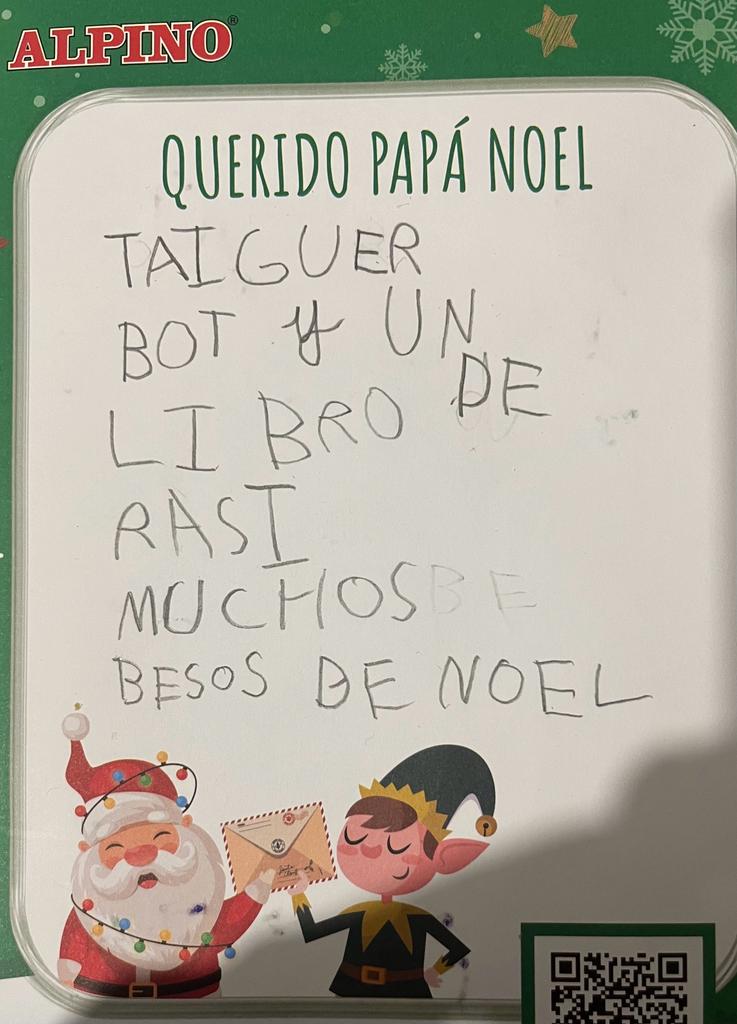 ALPINO®
QUERIDO PAPÁ NOEL
TAIGUER
BOT y UN
LIBRO DE
RASI
MUCHOS BE
BESOS DE NOEL